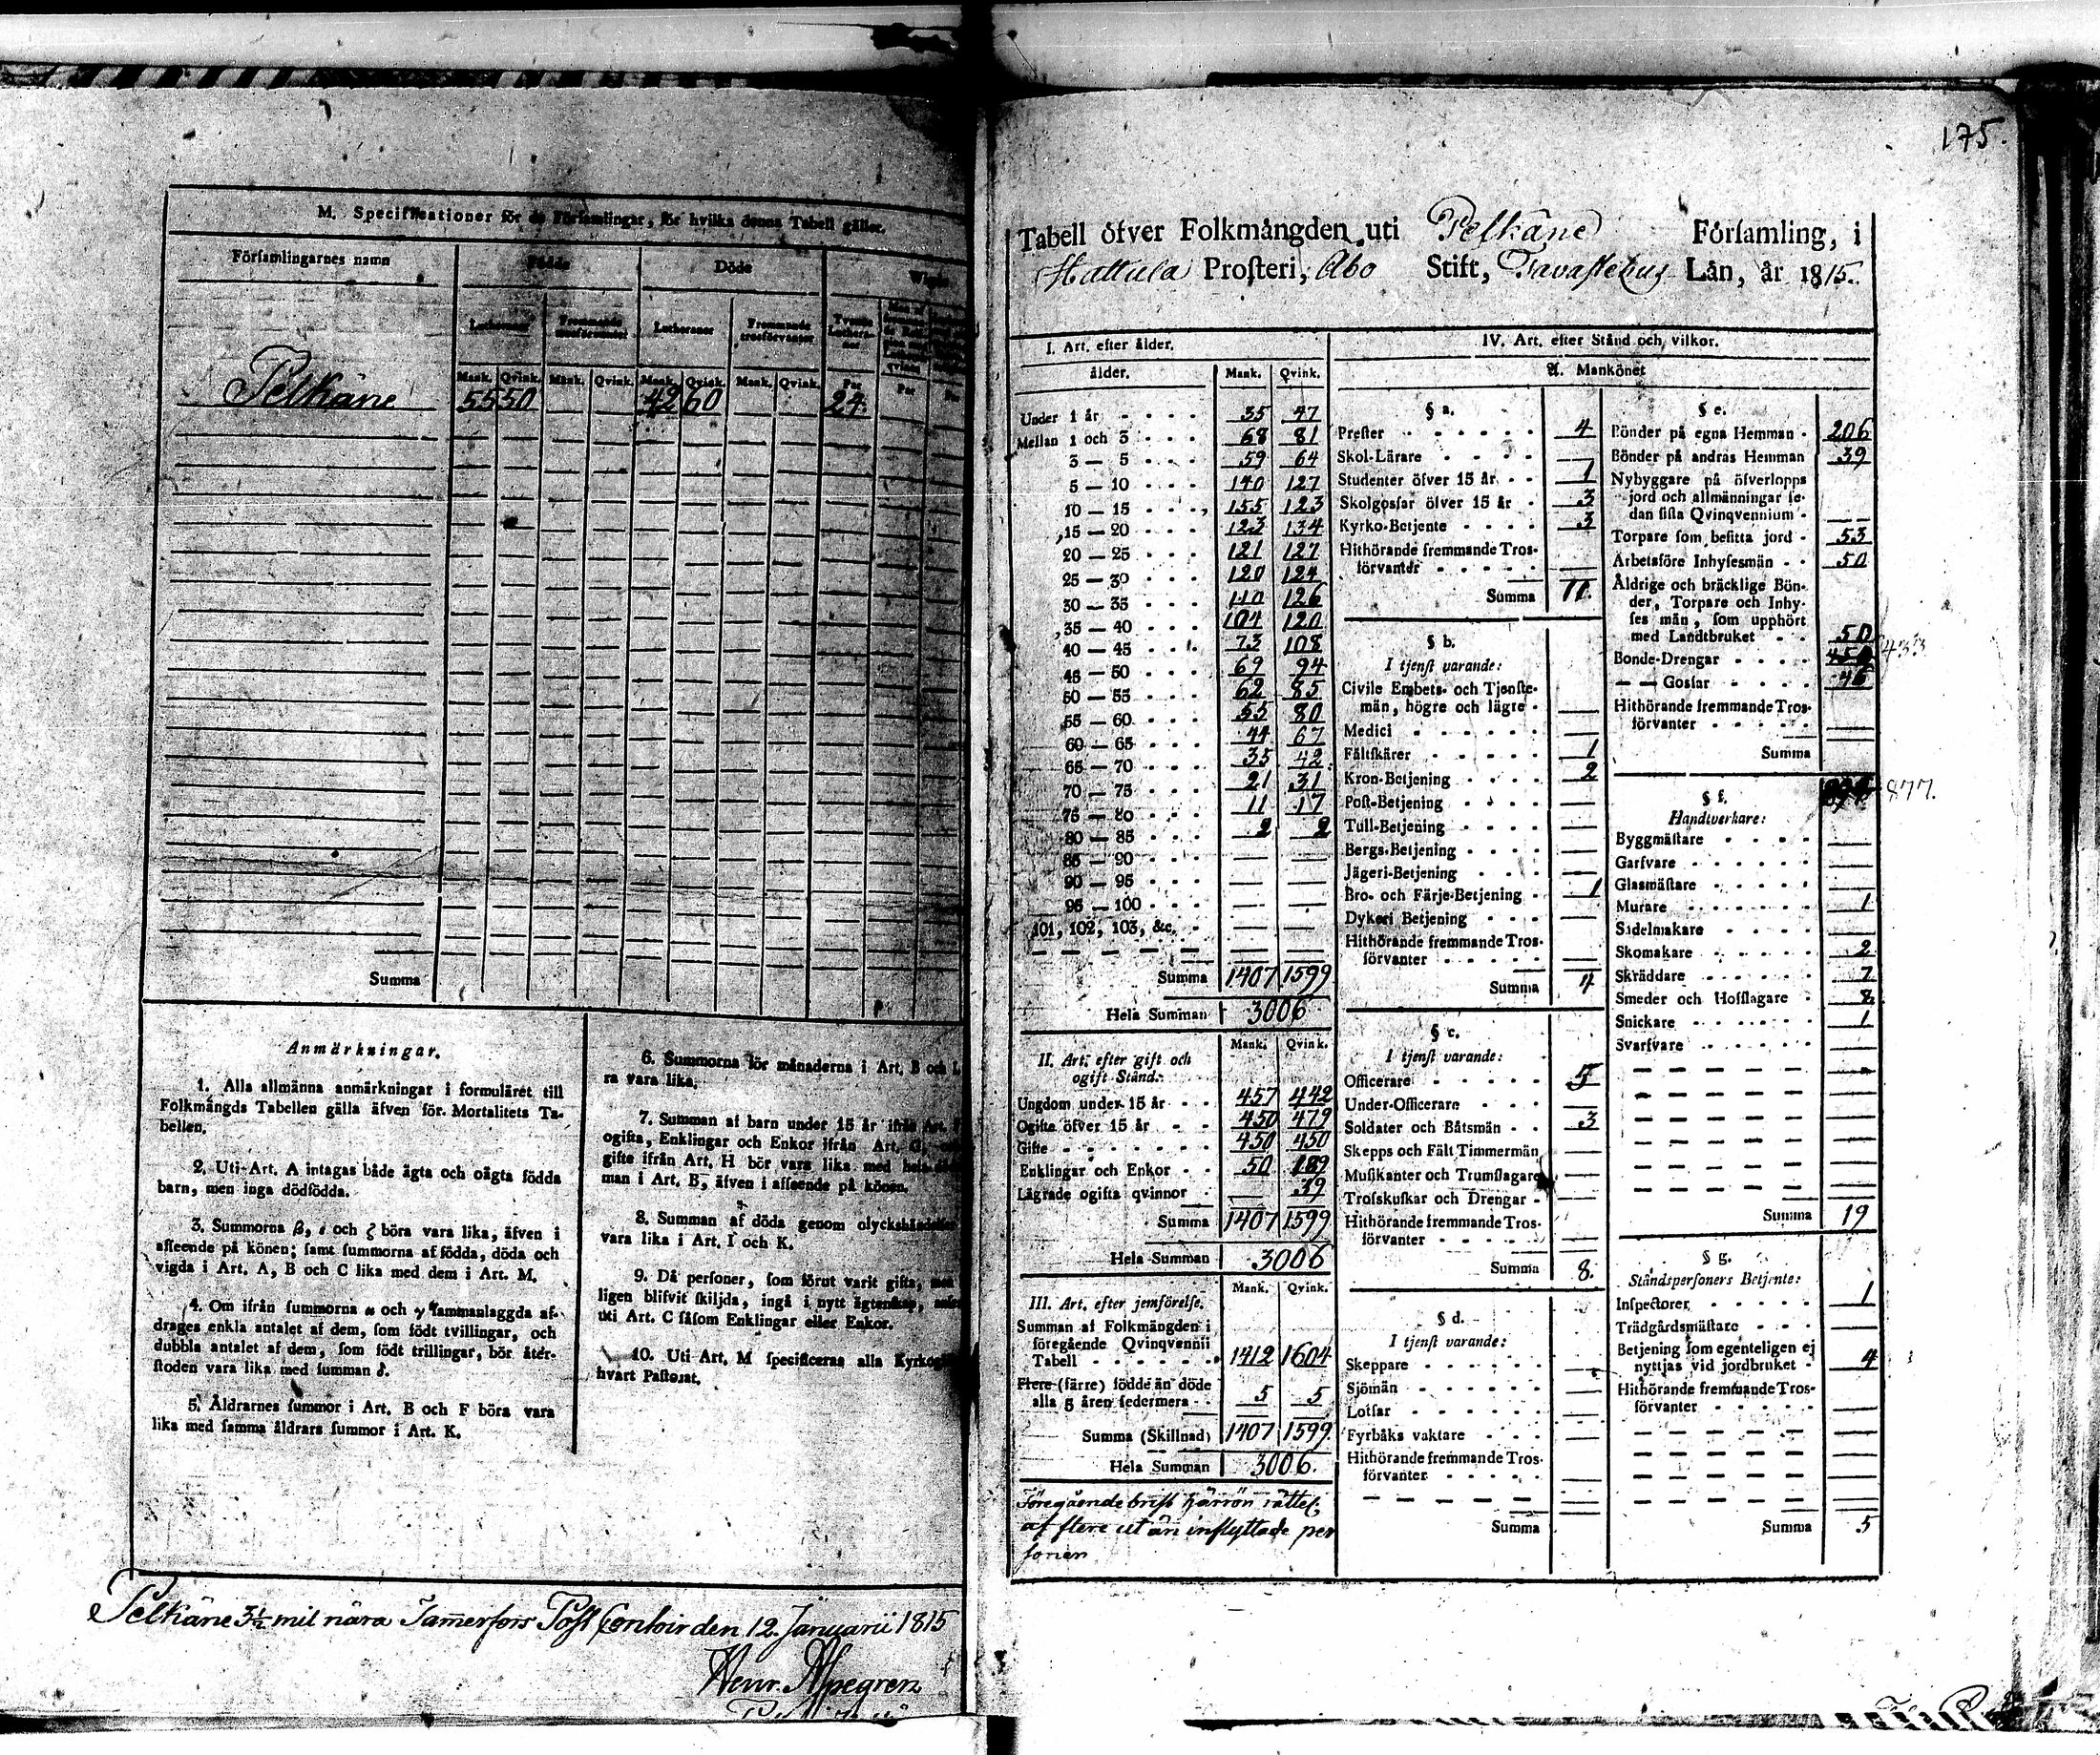 175.
M. Specificationer för de Församlingar, för hvilka denna Tabell gäller.
Församlingarnes namn
Födde
Döde
Lutheraner
Fremmande trosförvanter
Lutheraner
Fremmande trosförvanter
Tvenne Lutheraner
Mank. Qvink. Mank. Qvink. Mank. Qvink. Mank. Qvink. Par Par
Pelkäne 55 50 — — 42 60 — — 24.
Summa
Anmärkningar.
1. Alla allmänna anmärkningar i formuläret till
Folkmängds Tabellen gälla äfven för Mortalitets Ta-
bellen.
2. Uti Art. A intagas både ägta och oägta födda
barn, men inga dödfödda.
3. Summorna β, ε och ζ böra vara lika, äfven i
afseende på könen; samt summorna af födda, döda och
vigda i Art. A, B och C lika med dem i Art. M.
4. Om ifrån summorna α och γ sammanlaggda af-
drages enkla antalet af dem, som födt tvillingar, och
dubbla antalet af dem, som födt trillingar, bör åter-
stoden vara lika med summan δ.
5. Åldrarnes summor i Art. B och F böra vara
lika med samma åldrars summor i Art. K.
6. Summorna för månaderna i Art. B och L
ra vara lika.
7. Summan af barn under 15 år ifrån Art.
ogifta, Enklingar och Enkor ifrån Art. G,
gifte ifrån Art. H bör vara lika med hela
man i Art. B, äfven i afseende på könen.
8. Summan af döda genom olyckshändelser
vara lika i Art. I och K.
9. Då personer, som förut varit gifta, men
ligen blifvit skiljda, ingå i nytt ägtenskap,
uti Art. C såsom Enklingar eller Enkor.
10. Uti Art. M specificeras alla
hvart Pastorat.
Pelkäne 3½ mil nära Tamerfors Post Contoir den 12. Januarii 1815
Henr. Alpegren
Tabell öfver Folkmängden uti Pelkäne Församling, i
Hattula Prosteri, Åbo Stift, Tavastehus Län, år 1815.
I. Art. efter ålder.
ålder. Mank. Qvink.
Under 1 år 35 47
Mellan 1 och 3 68 81
3 — 5 59 64
5 — 10 140 127
10 — 15 155 123
15 — 20 123 134
20 — 25 121 127
25 — 30 120 124
30 — 35 110 126
35 — 40 104 120
40 — 45 73 108
45 — 50 69 94
50 — 55 62 85
55 — 60 55 80
60 — 65 44 67
65 — 70 35 42
70 — 75 21 31
75 — 80 11 17
80 — 85 2 2
85 — 90 — —
90 — 95 — —
95 — 100 — —
101, 102, 103, &c. — —
Summa 1407 1599
Hela Summan 3006
II. Art. efter gift och
ogift Stånd.
Mank. Qvink.
Ungdom under 15 år 457 442
Ogifte öfver 15 år 450 479
Gifte 450 450
Enklingar och Enkor 50 189
Lägrade ogifta qvinnor — 39
Summa 1407 1599
Hela Summan 3006
III. Art. efter jemförelse.
Mank. Qvink.
Summan af Folkmängden i
föregående Qvinqvennii
Tabell 1412 1604
Flere (färre) födde än döde
alla 5 åren sedermera 5 5
Summa (Skillnad) 1407 1599.
Hela Summan 3006.
Föregående brist härrör
af flere ut än inflyttade per
soner
IV. Art. efter Stånd och vilkor.
A. Mankönet
§ a.
Prester 4
Skol-Lärare —
Studenter öfver 15 år 1
Skolgossar öfver 15 år 3
Kyrko-Betjente 3
Hithörande fremmande Tros-
förvanter —
Summa 11.
§ b.
I tjenst varande:
Civile Embets- och Tjenste-
män, högre och lägre —
Medici —
Fältskärer 1
Kron-Betjening 2
Post-Betjening —
Tull-Betjening —
Bergs-Betjening —
Jägeri-Betjening —
Bro- och Färje-Betjening 1
Dykeri Betjening —
Hithörande fremmande Tros-
förvanter —
Summa 4
§ c.
I tjenst varande:
Officerare 5
Under-Officerare —
Soldater och Båtsmän 3
Skepps och Fält Timmermän —
Musikanter och Trumslagare —
Trosskuskar och Drengar —
Hithörande fremmande Tros-
förvanter —
Summa 8.
§ d.
I tjenst varande:
Skeppare —
Sjömän —
Lotsar —
Fyrbåks vaktare —
Hithörande fremmande Tros-
förvanter —
Summa
§ e.
Bönder på egna Hemman 206
Bönder på andras Hemman 39
Nybyggare på öfverlopps
jord och allmänningar se-
dan sista Qvinqvennium —
Torpare som besitta jord 53
Arbetsföre Inhysesmän 50
Åldrige och bräcklige Bön-
der, Torpare och Inhy-
ses män, som upphört
med Landtbruket 50
Bonde-Drengar 433
— — Gossar 46
Hithörande fremmande Tros-
förvanter —
Summa 877.
§ f.
Handtverkare:
Byggmästare —
Garfvare —
Glasmästare —
Murare 1
Sadelmakare —
Skomakare 2
Skräddare 7
Smeder och Hofslagare 8
Snickare 1
Svarfvare —
Summa 19
§ g.
Ståndspersoners Betjente:
Inspectorer 1
Trädgårdsmästare —
Betjening som egenteligen ej
nyttjas vid jordbruket 4
Hithörande fremmande Tros-
förvanter —
Summa 5